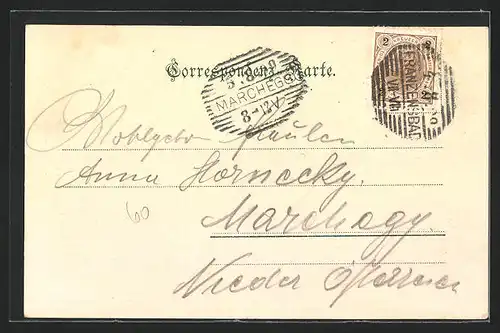 Correspondenz-Karte.
MARCHEGG
8-12V
2
FRANZENSBAD
Wohlgebor Fräulen
Anna Hornecky.
60
Marchegg.
Nieder Österreich